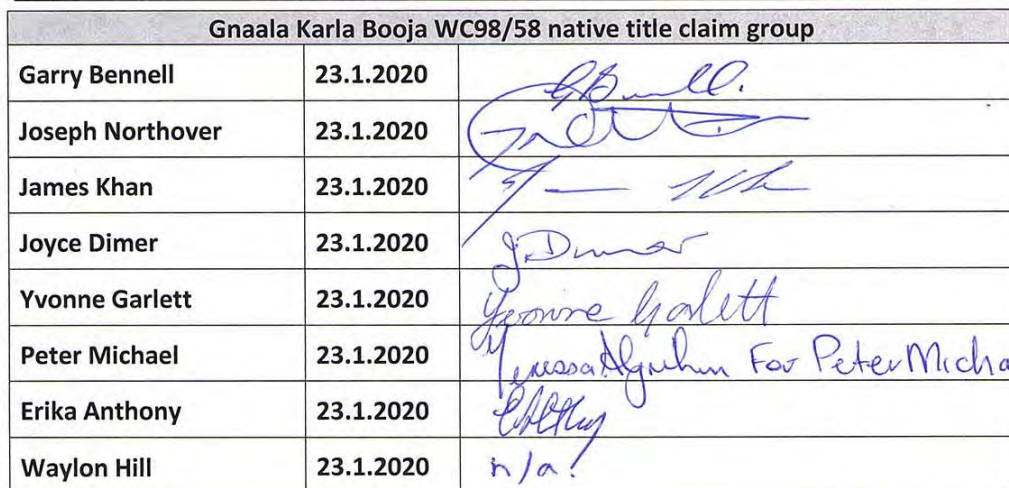 Gnaala Karla Booja WC98/58 native title claim group
Garry Bennell 23.1.2020 GBennell.
Joseph Northover 23.1.2020
James Khan 23.1.2020
Joyce Dimer 23.1.2020 J.Dimer
Yvonne Garlett 23.1.2020 Yvonne Garlett
Peter Michael 23.1.2020 For Peter Micha
Erika Anthony 23.1.2020
Waylon Hill 23.1.2020 n/a.